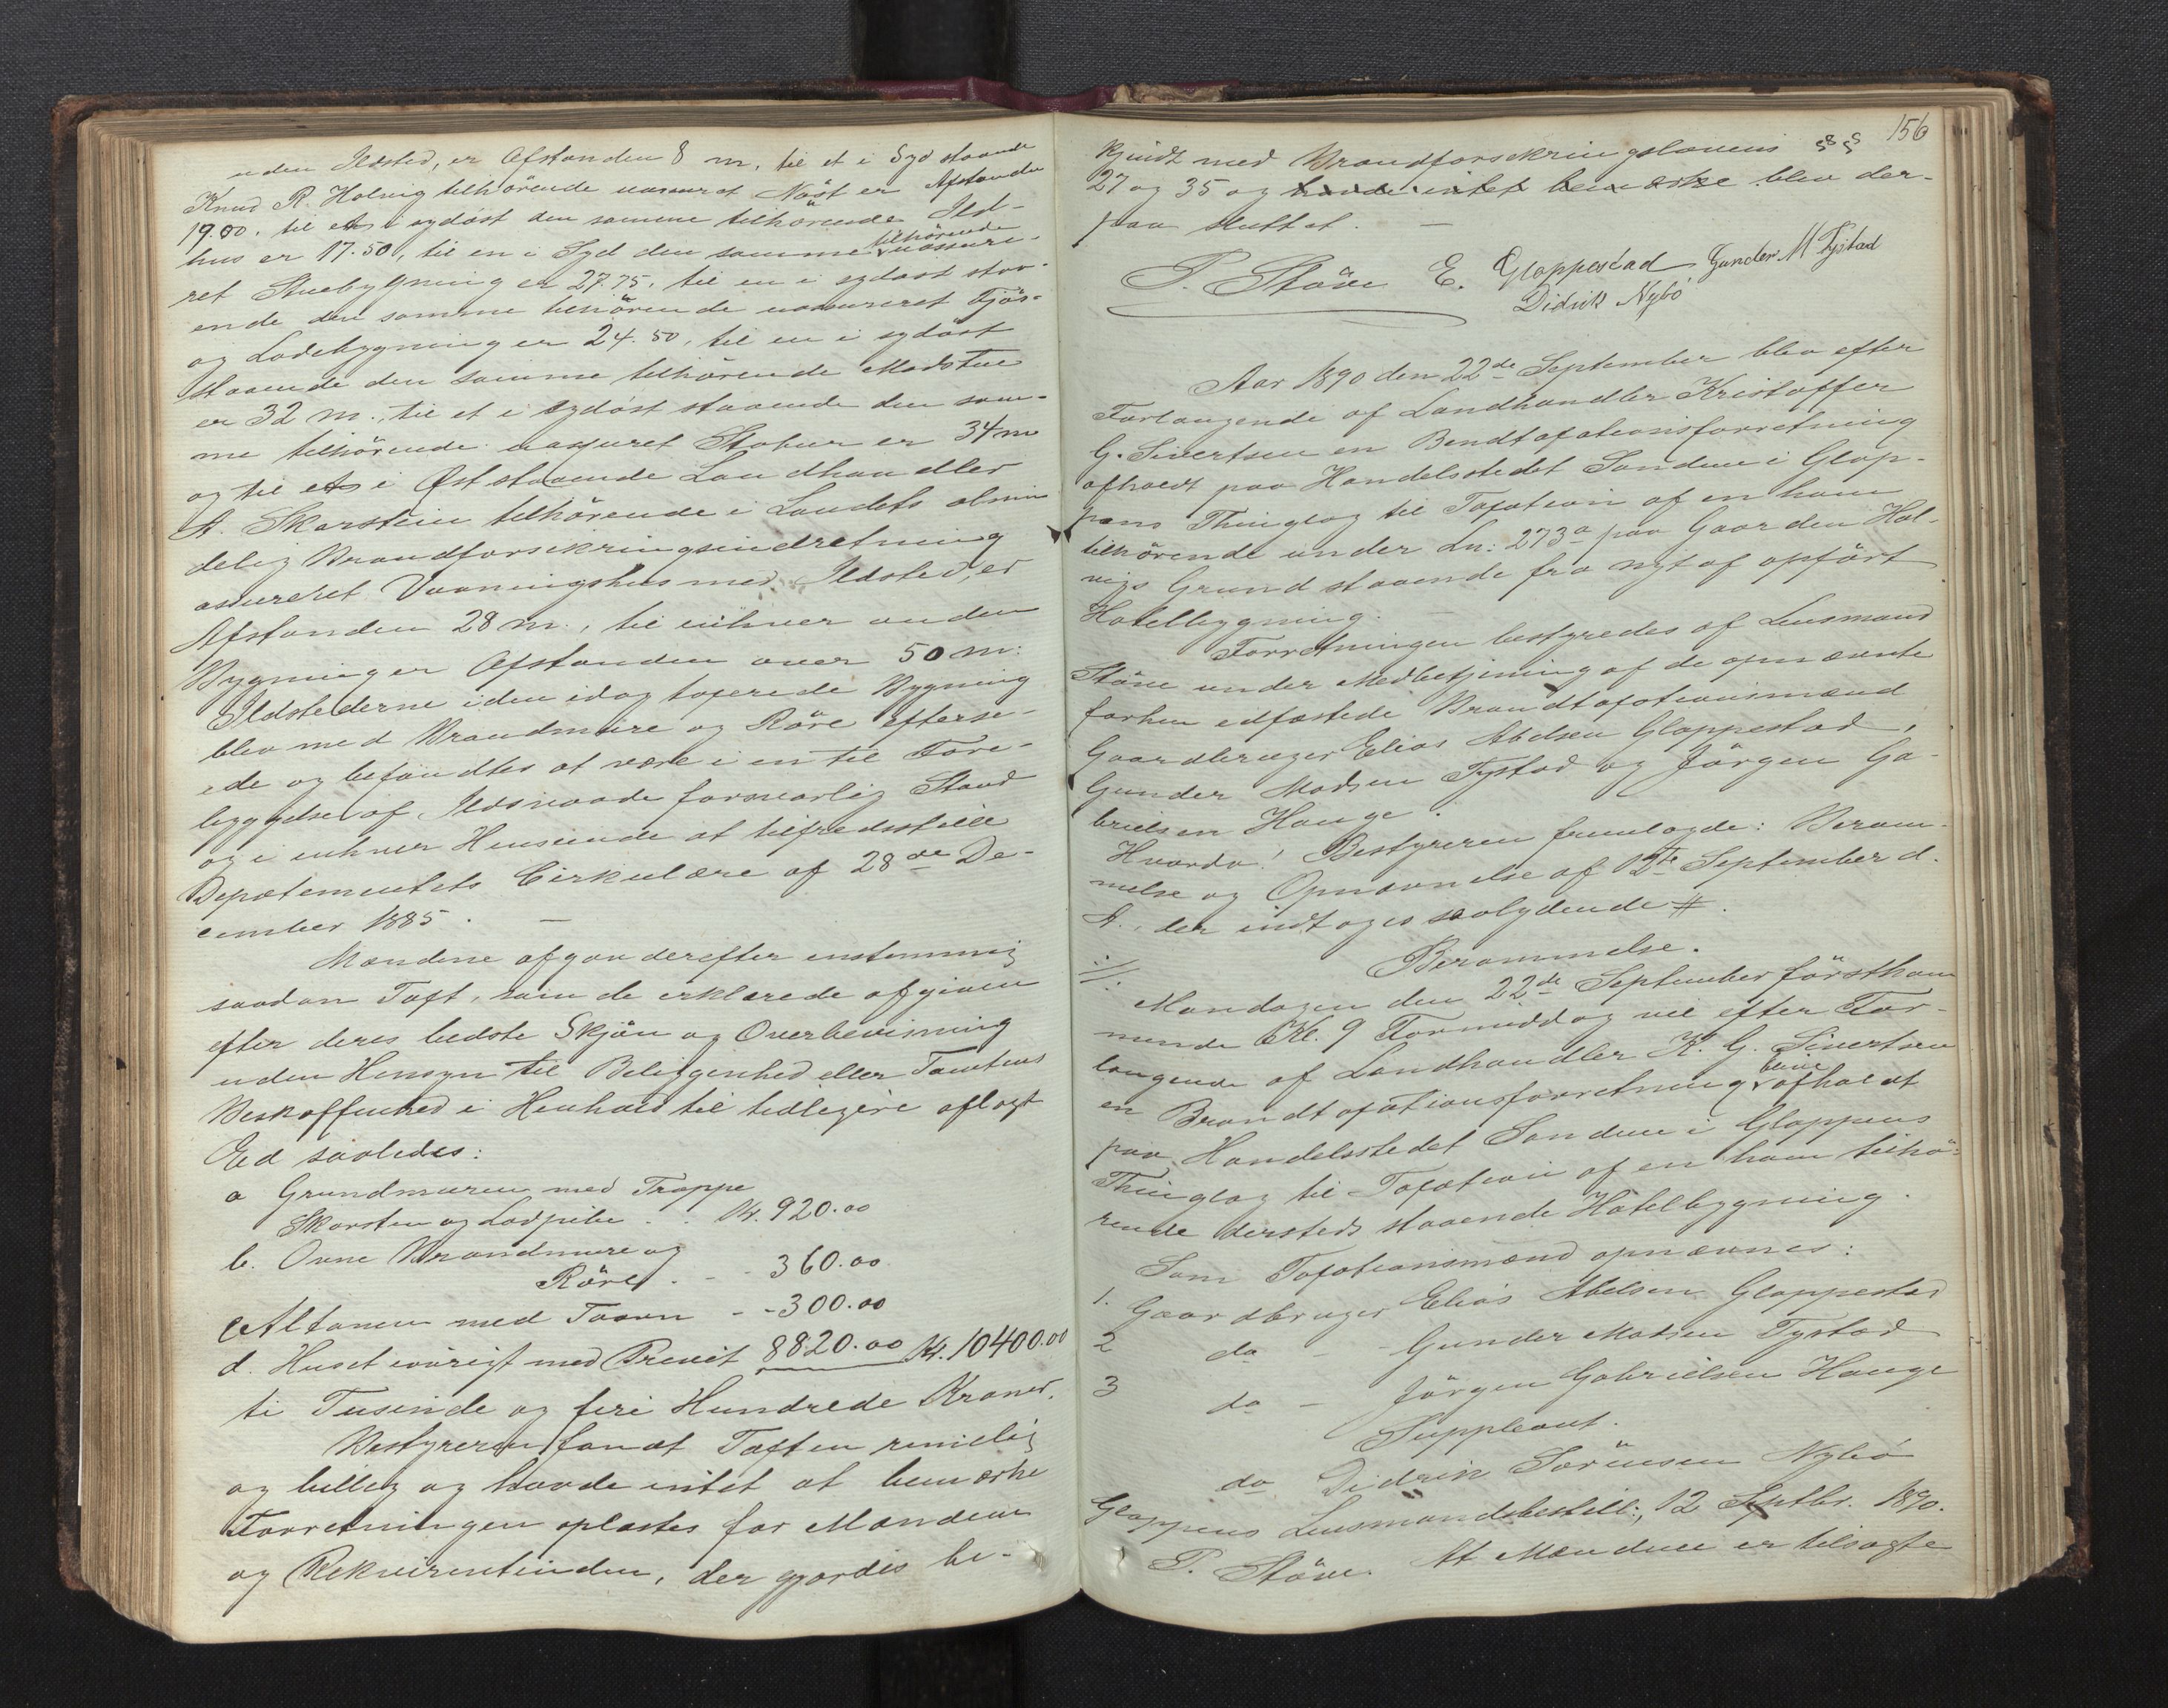 uden Ildsted, er Afstanden 8 m, til et i Syd staaende
Knud R. Holvig tilhörende uassureret Nöst er Afstanden
19.00, til et i sydöst den samme tilhörende Ild-
hus er 17.50, til en i Syd den samme tilhörende uassure-
ret Stuebygning er 27.75, til en i sydöst staa-
ende den samme tilhörende uassureret Fjös-
og Ladebygning er 24.50, til en i sydöst
staaende den samme tilhörende Madstue
er 32 m., til et i sydöst staaende den sam-
me tilhörende uassuret Stabur er 34 m
og til et i Øst staaende Landhandler
A. Skarstein tilhörende i Landets almin
delig Brandforsikringsindretning
assureret Vaaningshus med Ildsted, er
Afstanden 28 m., til enhver anden
Bygning er Afstanden over 50 m:
Ildstederne i den idag taxerede Bygning
blev med Brandmure og Röre efterse-
ede og befandtes at være i en til Fore-
byggelse af Ildsvaade forsvarlig Stand
og i enhver Henseende at tilfredsstille
Depatementets Cirkulære af 28de De-
cember 1885. —
Mændene afgav derefter enstemmig
saadan Taxt, som de erklærede afgiven
efter deres bedste Skjön og Overbevisning
uden Hensyn til Beliggenhed eller Tomtens
Beskaffenhed i Henhold til tidligere aflagt
Ed saaledes:
a Grundmuren med Trappe
Skorsten og Ladpibe . . Kr. 920.00
b. Ovne Brandmure og
Röre . - - 360.00
c Altanen med Taarn - - 300.00
d. Huset iövrigt med Prevet 8820.00 Kr. 10400.00
ti Tusinde og fire Hundrede Kroner.
Bestyreren fandt Taxten rimelig
og billig og havde intet at bemærke
Forretningen oplæstes for Mændene
og Rekvirentinden, der gjordes be-
156
kjendt med Brandforsikringslovens §§
27 og 35 og havde intet bemærke blev der-
paa sluttet. —
P. Stöve E. Gloppestad Gunder M Tystad
Didrik Nybö
Aar 1890 den 22de September blev efter
Forlangende af Landhandler Kristoffer
G. Sivertsen en Brandtaxationsforretning
afholdt paa Handelsstedet Sandene i Glop-
pens Thinglag til Taxation af en ham
tilhörende under Ln: 273a paa Gaarden Hol-
vigs Grund staaende fra nyt af opfört
Hotelbygning. —
Forretningen bestyredes af Lensmand
Stöve under Medbetjening af de opnævnte
forhen edfæstede Brandtaxationsmænd
Gaardbruger Elias Abelsen Gloppestad,
Gunder Madsen Tystad og Jörgen Ga-
brielsen Hauge.
Hvorda! Bestyreren fremlagde: Beram-
melse og Opnævnelse af 12te September d.
A., der indtoges saalydende #.
Berammelse.
·/. Mandagen den 22de September förstkom
mende Kl. 9 Formiddag vil efter For-
langende af Landhandler K. G. Sivertsen
en Brandtaxationsforretning blive afholdt
paa Handelsstedet Sandene i Gloppens
Thinglag til Taxation af en ham tilhö-
rende dersteds staaende Hotelbygning.
Som Taxationsmænd opnævnes:
1. Gaardbruger Elias Abelsen Gloppestad
2 do - - Gunder Madsen Tystad
3 do - Jörgen Gabrielsen Hauge
Suppleant.
do Didrik Sörensen Nybö
Gloppens Lensmandsbestill:, 12 Septbr. 1890.
P. Stöve. At Mændene er tilsagte